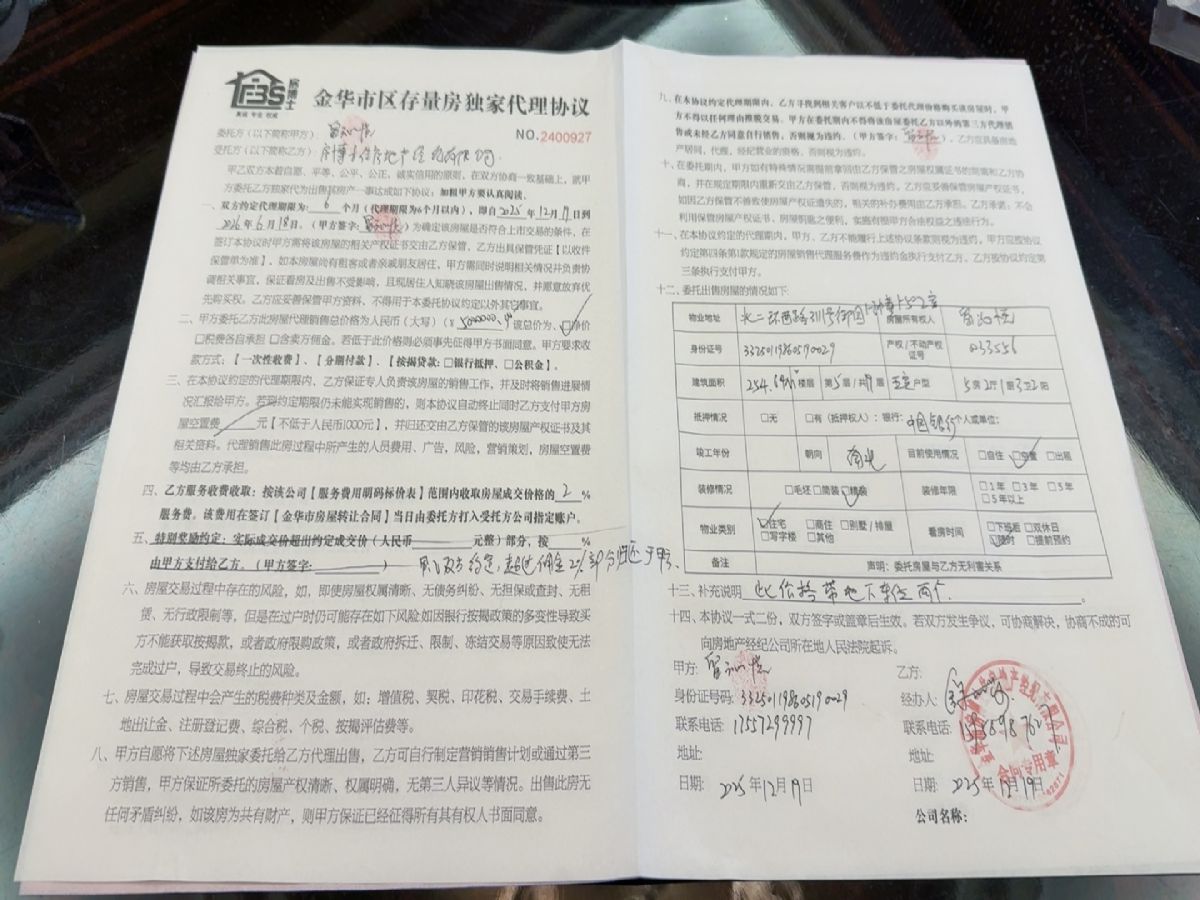 FBS
房博士
真诚 专业 权威
金华市区存量房独家代理协议
NO.2400927
委托方（以下简称甲方）：
受托方（以下简称乙方）：房博士
甲乙双方本着自愿、平等、公平、公正、诚实信用的原则，在双方协商一致基础上，就甲
方委托乙方独家代为出售其房产一事达成如下协议：如租甲方要认真阅读。
一、双方约定代理期限为：6 个月（代理期限为6个月以内），即自2025年12月19日到
2026年6月18日。（甲方签字： ）为确定该房屋是否符合上市交易的条件，在
签订本协议时甲方需将该房屋的相关产权证书交由乙方保管，乙方出具保管凭证【以收件
保管单为准】。如本房屋尚有租客或者亲戚朋友居住，甲方需同时说明相关情况并负责协
调相关事宜，保证看房及出售不受影响，且现居住人知晓该房屋出售情况，并愿意放弃优
先购买权。乙方应妥善保管甲方资料，不得用于本委托协议约定以外其它事宜。
二、甲方委托乙方此房屋代理销售总价格为人民币（大写）（¥ 5000000 该总价为、☑净价
□税费各自承担 □含卖方佣金。若低于此价格则必须事先征得甲方书面同意。甲方要求收
款方式：【一次性收费】、【分期付款】、【按揭贷款：□银行抵押、□公积金】。
三、在本协议约定的代理期限内，乙方保证专人负责该房屋的销售工作，并及时将销售进展情
况汇报给甲方。若到约定期限仍未能实现销售的，则本协议自动终止同时乙方支付甲方房
屋空置费 元【不低于人民币1000元】，并归还交由乙方保管的该房屋产权证书及其
相关资料。代理销售此房过程中所产生的人员费用、广告，风险，营销策划，房屋空置费
等均由乙方承担。
四、乙方服务收费收取：按该公司【服务费用明码标价表】范围内收取房屋成交价格的 2 %
服务费。该费用在签订【金华市房屋转让合同】当日由委托方打入受托方公司指定账户。
五、特别奖励约定：实际成交价超出约定成交价（人民币 元整）部分，按 %
由甲方支付给乙方。（甲方签字： ） 双方约定，超过佣金2%部分归还于甲方
六、房屋交易过程中存在的风险，如，即使房屋权属清晰、无债务纠纷、无担保或查封、无租
赁、无行政限制等，但是在过户时仍可能存在如下风险如因银行按揭政策的多变性导致买
方不能获取按揭款，或者政府限购政策，或者政府拆迁、限制、冻结交易等原因致使无法
完成过户，导致交易终止的风险。
七、房屋交易过程中会产生的税费种类及金额，如：增值税、契税、印花税、交易手续费、土
地出让金、注册登记费、综合税、个税、按揭评估费等。
八、甲方自愿将下述房屋独家委托给乙方代理出售，乙方可自行制定营销销售计划或通过第三
方销售，甲方保证所委托的房屋产权清晰、权属明确，无第三人异议等情况。出售此房无
任何矛盾纠纷，如该房为共有财产，则甲方保证已经征得所有其有权人书面同意。
九、在本协议约定代理期限内、乙方寻找到相关客户以不低于委托代理价格购买该房屋时，甲
方不得以任何理由推脱交易。甲方在委托期内不得将该房屋委托乙方以外的第三方代理销
售或未经乙方同意自行销售，否则视为违约。（甲方签字： ），乙方应具备房地
产居间，代理，经纪营业的资格，否则视为违约。
十、在委托期内，甲方如有特殊情况需提前拿回由乙方保管之房屋权属证书的则需和乙方协
商，并在规定期限内重新交由乙方保管，否则视为违约，乙方应妥善保管房屋产权证书，
如因乙方保管不善致使房产权证遗失的，相关的补办费用由乙方承担。乙方承诺：不会
利用保管房屋产权证书，房屋钥匙之便利，实施有损甲方合法权益之违法行为。
十一、在本协议约定的代理期内，甲方、乙方不能履行上述协议条款则视为违约，甲方应按协议
约定第四条第1款规定的房屋销售代理服务费作为违约金执行支付乙方，乙方按协议约定第
三条执行支付甲方。
十二、委托出售房屋的情况如下：
物业地址 房屋所有权人
身份证号 332501198605190029 产权/不动产权证号 0233556
建筑面积 254.69m² 楼层 第5层/ 层 户型 5房2厅1厨3卫3阳
抵押情况 □无 □有（抵押权人）：银行：中国银行 个人或单位：
竣工年份 朝向 南北 目前使用情况 □自住 ☑空置 □出租
装修情况 □毛坯 □简装 ☑精装 装修年限 □1年 □3年 □5年 □5年以上
物业类别 ☑住宅 □商住 □别墅/排屋 □写字楼 □其他 看房时间 □下班后 □双休日 ☑随时 □提前预约
备注 声明：委托房屋与乙方无利害关系
十三、补充说明 此价格带地下车位两个。
十四、本协议一式二份，双方签字或盖章后生效。若双方发生争议，可协商解决，协商不成的可
向房地产经纪公司所在地人民法院起诉。
甲方： 乙方：
身份证号码：332501198605190029 经办人：
联系电话：17557299997 联系电话：
地址： 地址：
日期：2025年12月19日 日期：2025年12月19日
合同专用章
公司名称：